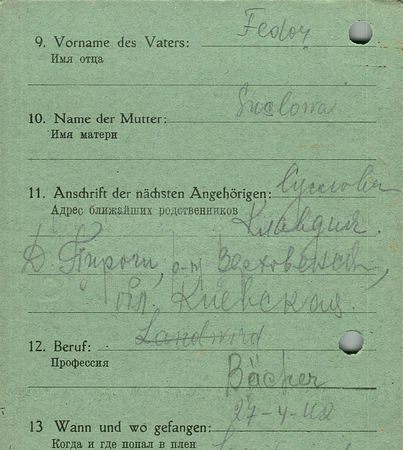 9. Vorname des Vaters: Fedor
Имя отца
10. Name der Mutter: Suslowa
Имя матери
11. Anschrift der nächsten Angehörigen: Суслова
Адрес ближайших родственников Клавдия.
Д. Пироги, р-н
обл. Киевская.
12. Beruf: Landwird
Профессия
Bäcker
27-4-42
13 Wann und wo gefangen:
Когда и где попал в плен